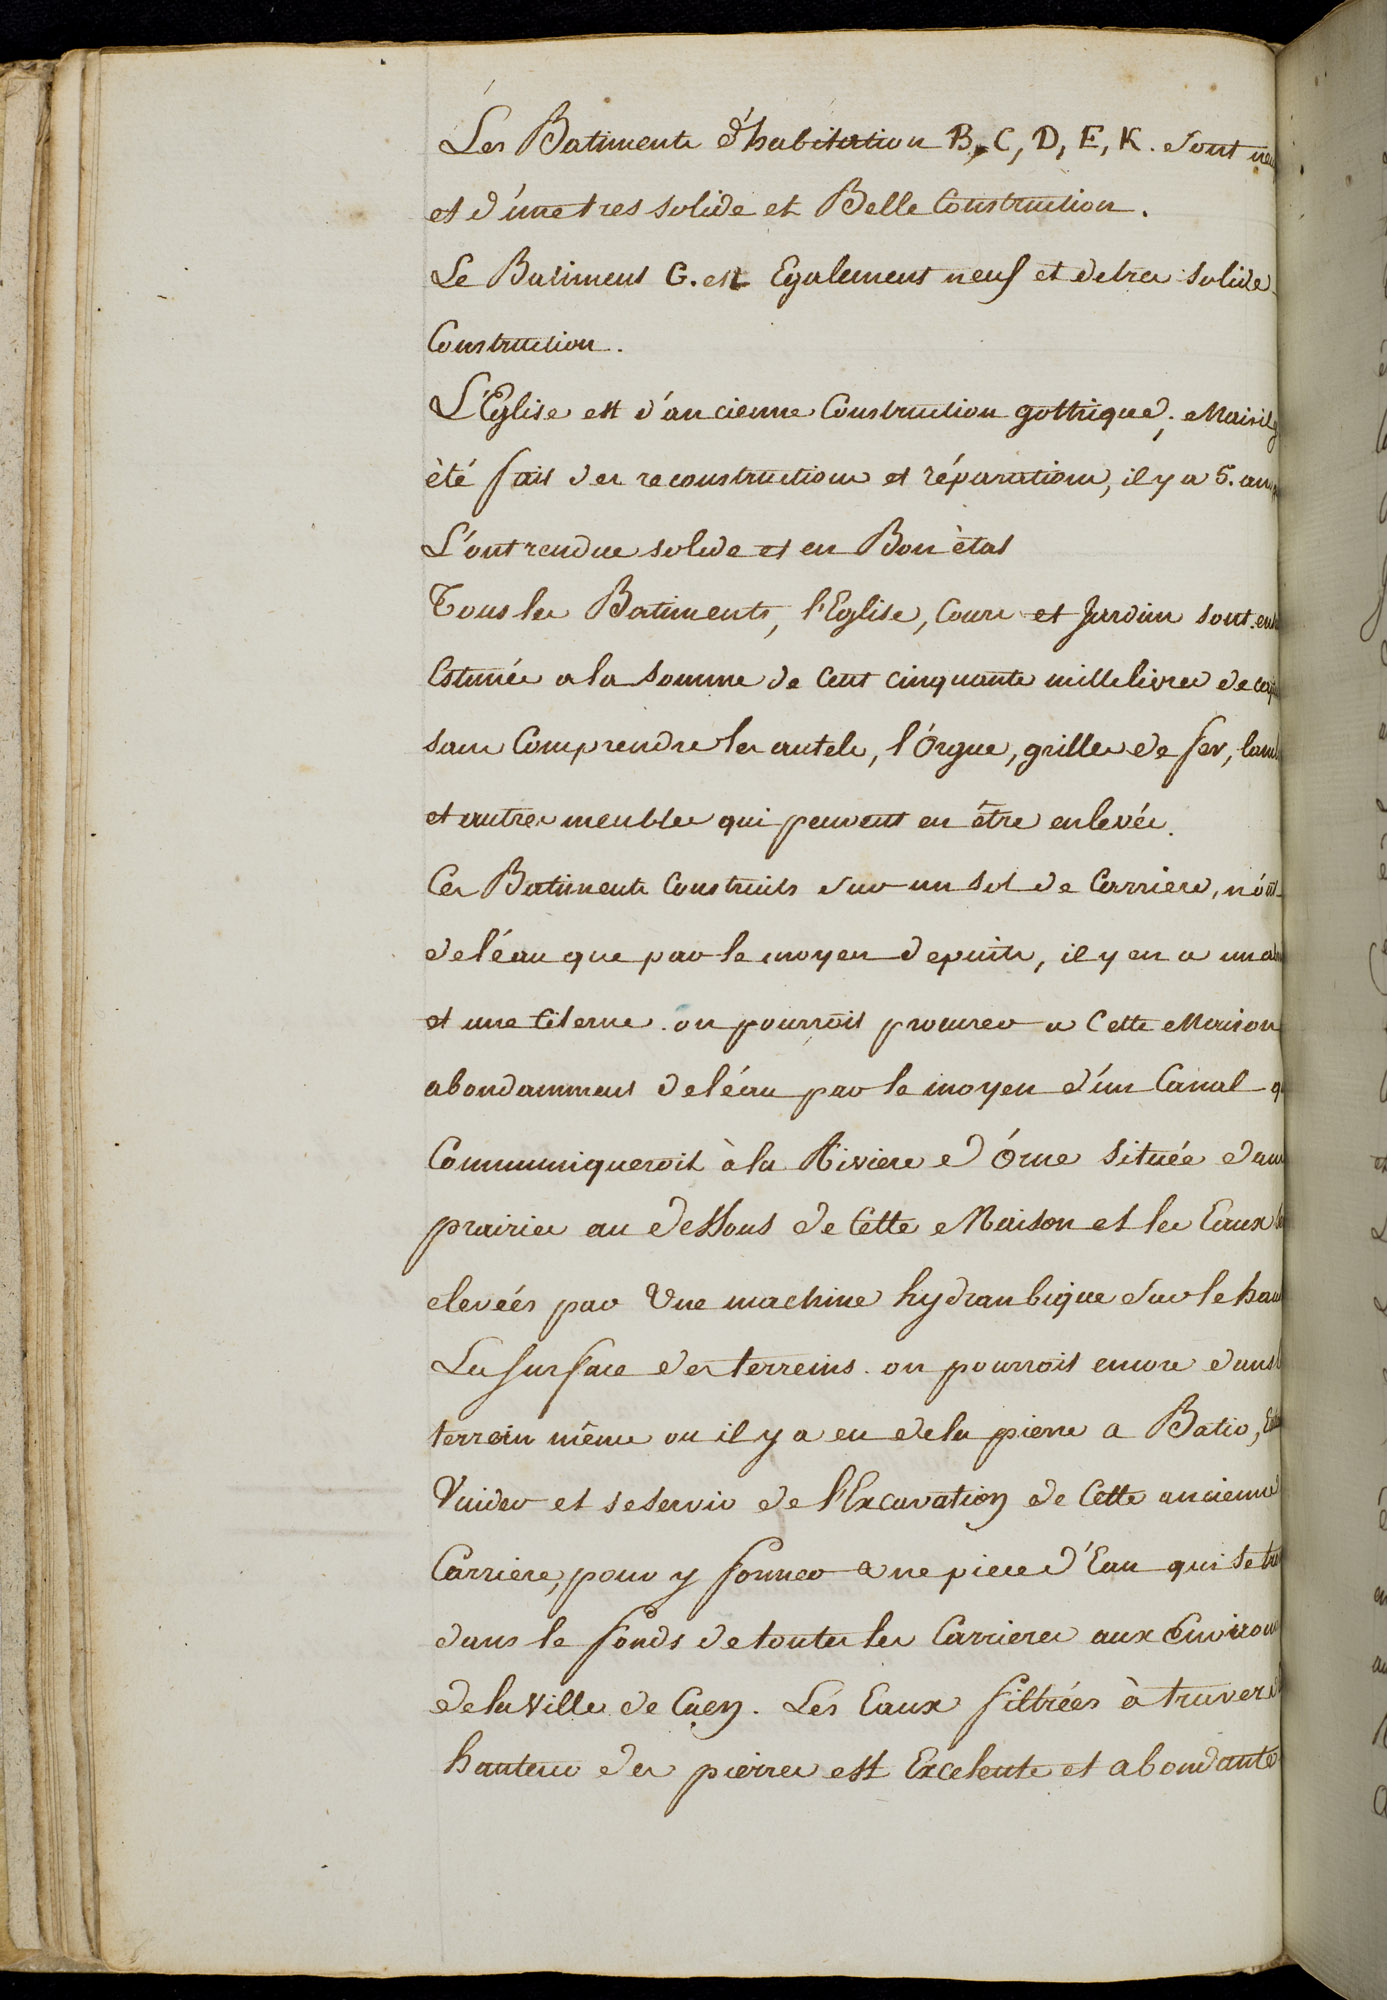 Les Batiments d'habitation B, C, D, E, K. sont
et d'une tres solide et Belle Construction.
Le Batiment G. est Egalement neuf et de tres solide
Construction.
L'Eglise est d'ancienne Construction gothique, Mais il y
èté fait des reconstructions et réparations, il y a 5. ans
L'ont rendue solide et en Bon ètat
Tous les Batiments, l'Eglise, Cours et Jardins sont
Estimés a la Somme de Cent cinquante mille livres de
sans Comprendre les autels, l'Orgue, grilles de fer,
et autres meubles qui peuvent en être enlevés.
Ces Batiments Construits sur un sol de Carriere, n'ont
de léau que par le moyen de puits, il y en a un
et une Citerne. on pourroit procurer a Cette Maison
abondamment de léau par le moyen d'un Canal
Communiqueroit à la Riviere d'Orne Située dans
prairies au dessous de Cette Maison et les Eaux
elevées par Une machine hydraulique sur le haut
La surface des terreins. on pourroit encore dans
terrein même ou il y a eu de la pierre a Batir,
Vuider et se servir de l'Excavation de Cette ancienne
Carriere, pour y former une piece d'Eau qui se
dans le fonds de toutes les Carrieres aux Environs
de la Ville de Caen. Lés Eaux filtrées à travers
hauteur des pierres est Excelente et abondante